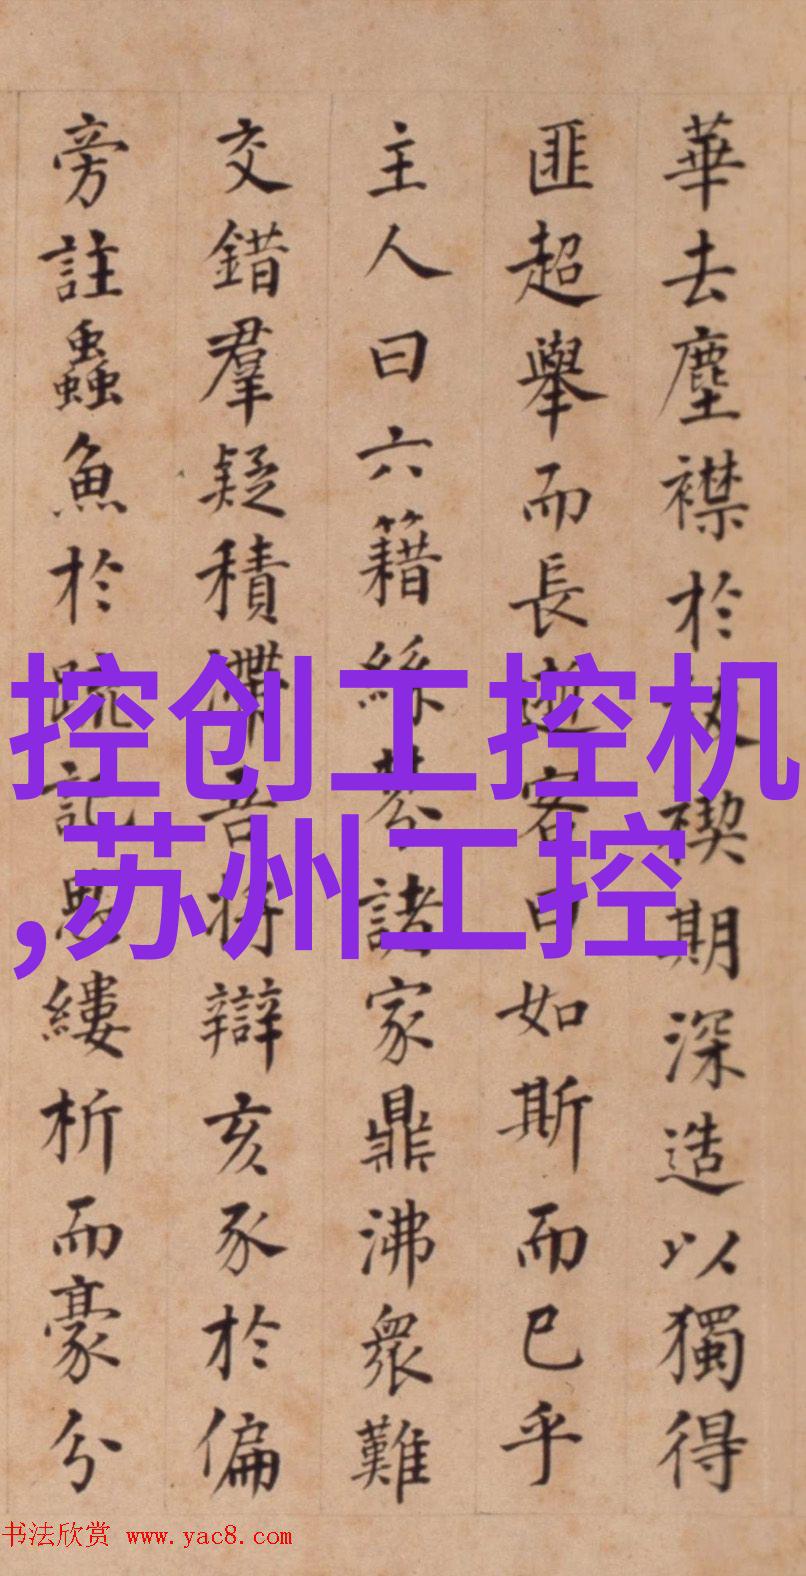 華去塵襟於禊期深造以獨得
匪超舉而長客曰如斯而已乎
主人曰六籍絲棼諸家鼎沸衆難
交錯羣疑積滯吾將辯亥豕於偏
旁註蟲魚於疏記思縷析而豪分
控创工控机
,苏州工控
书法欣赏 www.yac8.com